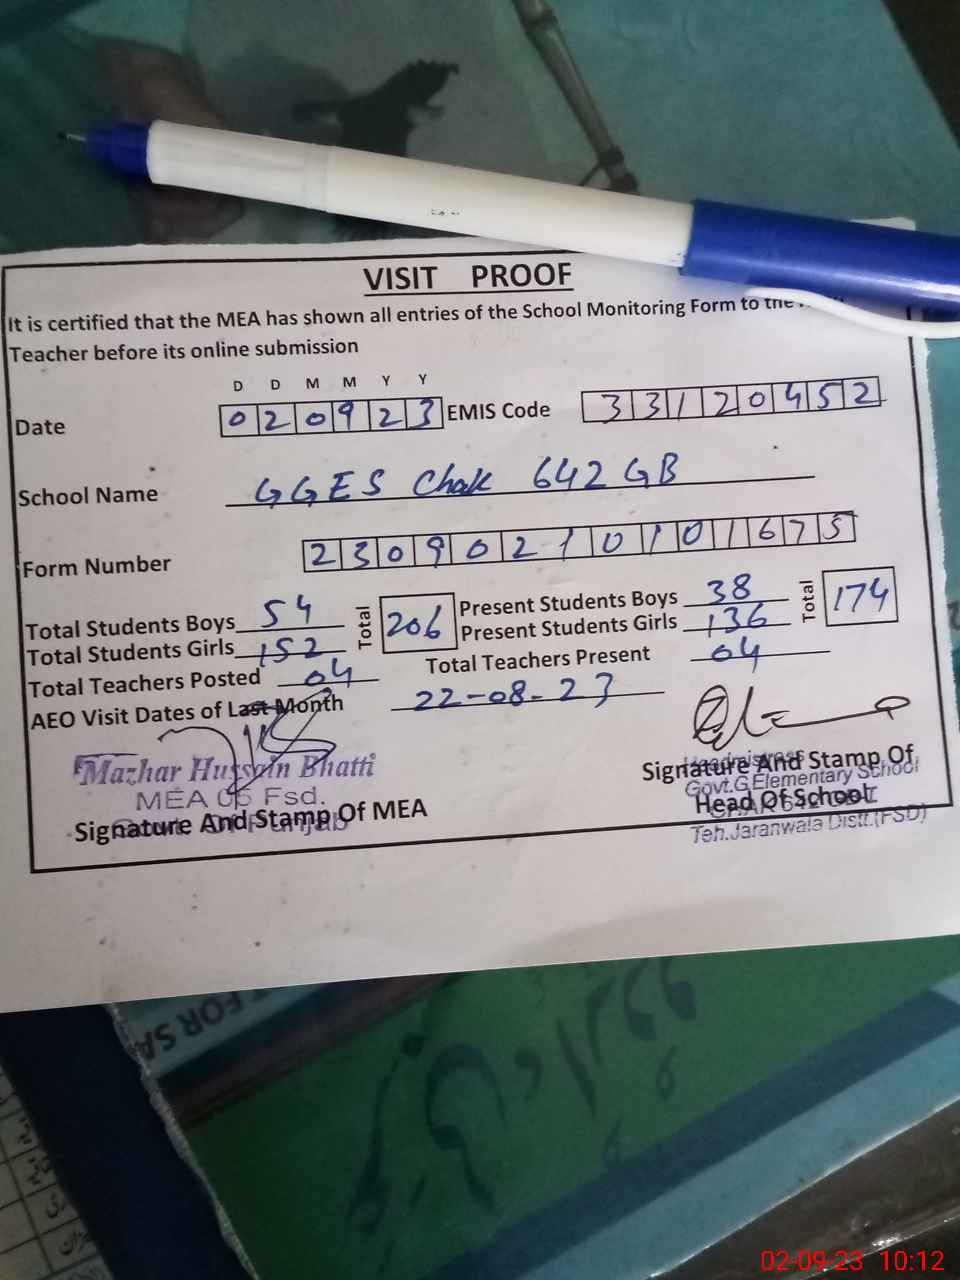 VISIT PROOF
It is certified that the MEA has shown all entries of the School Monitoring Form to the
Teacher before its online submission
D D M M Y Y
Date 0 2 0 9 2 3 EMIS Code 3 3 1 2 0 4 5 2
School Name GGES Chak 642 GB
Form Number 2 3 0 9 0 2 1 0 1 0 1 6 7 5
Total Students Boys 54 Total 206 Present Students Boys 38 Total 174
Total Students Girls 152 Present Students Girls 136
Total Teachers Posted 04 Total Teachers Present 04
AEO Visit Dates of Last Month 22-08-23
Mazhar Hussain Bhatti
MEA Fsd.
Signature And Stamp Of MEA
Headmistress
Signature And Stamp Of
Govt.G.Elementary School
Head Of School
Teh.Jaranwala Distt.(FSD)
FOR SA
02-09-23 10:12